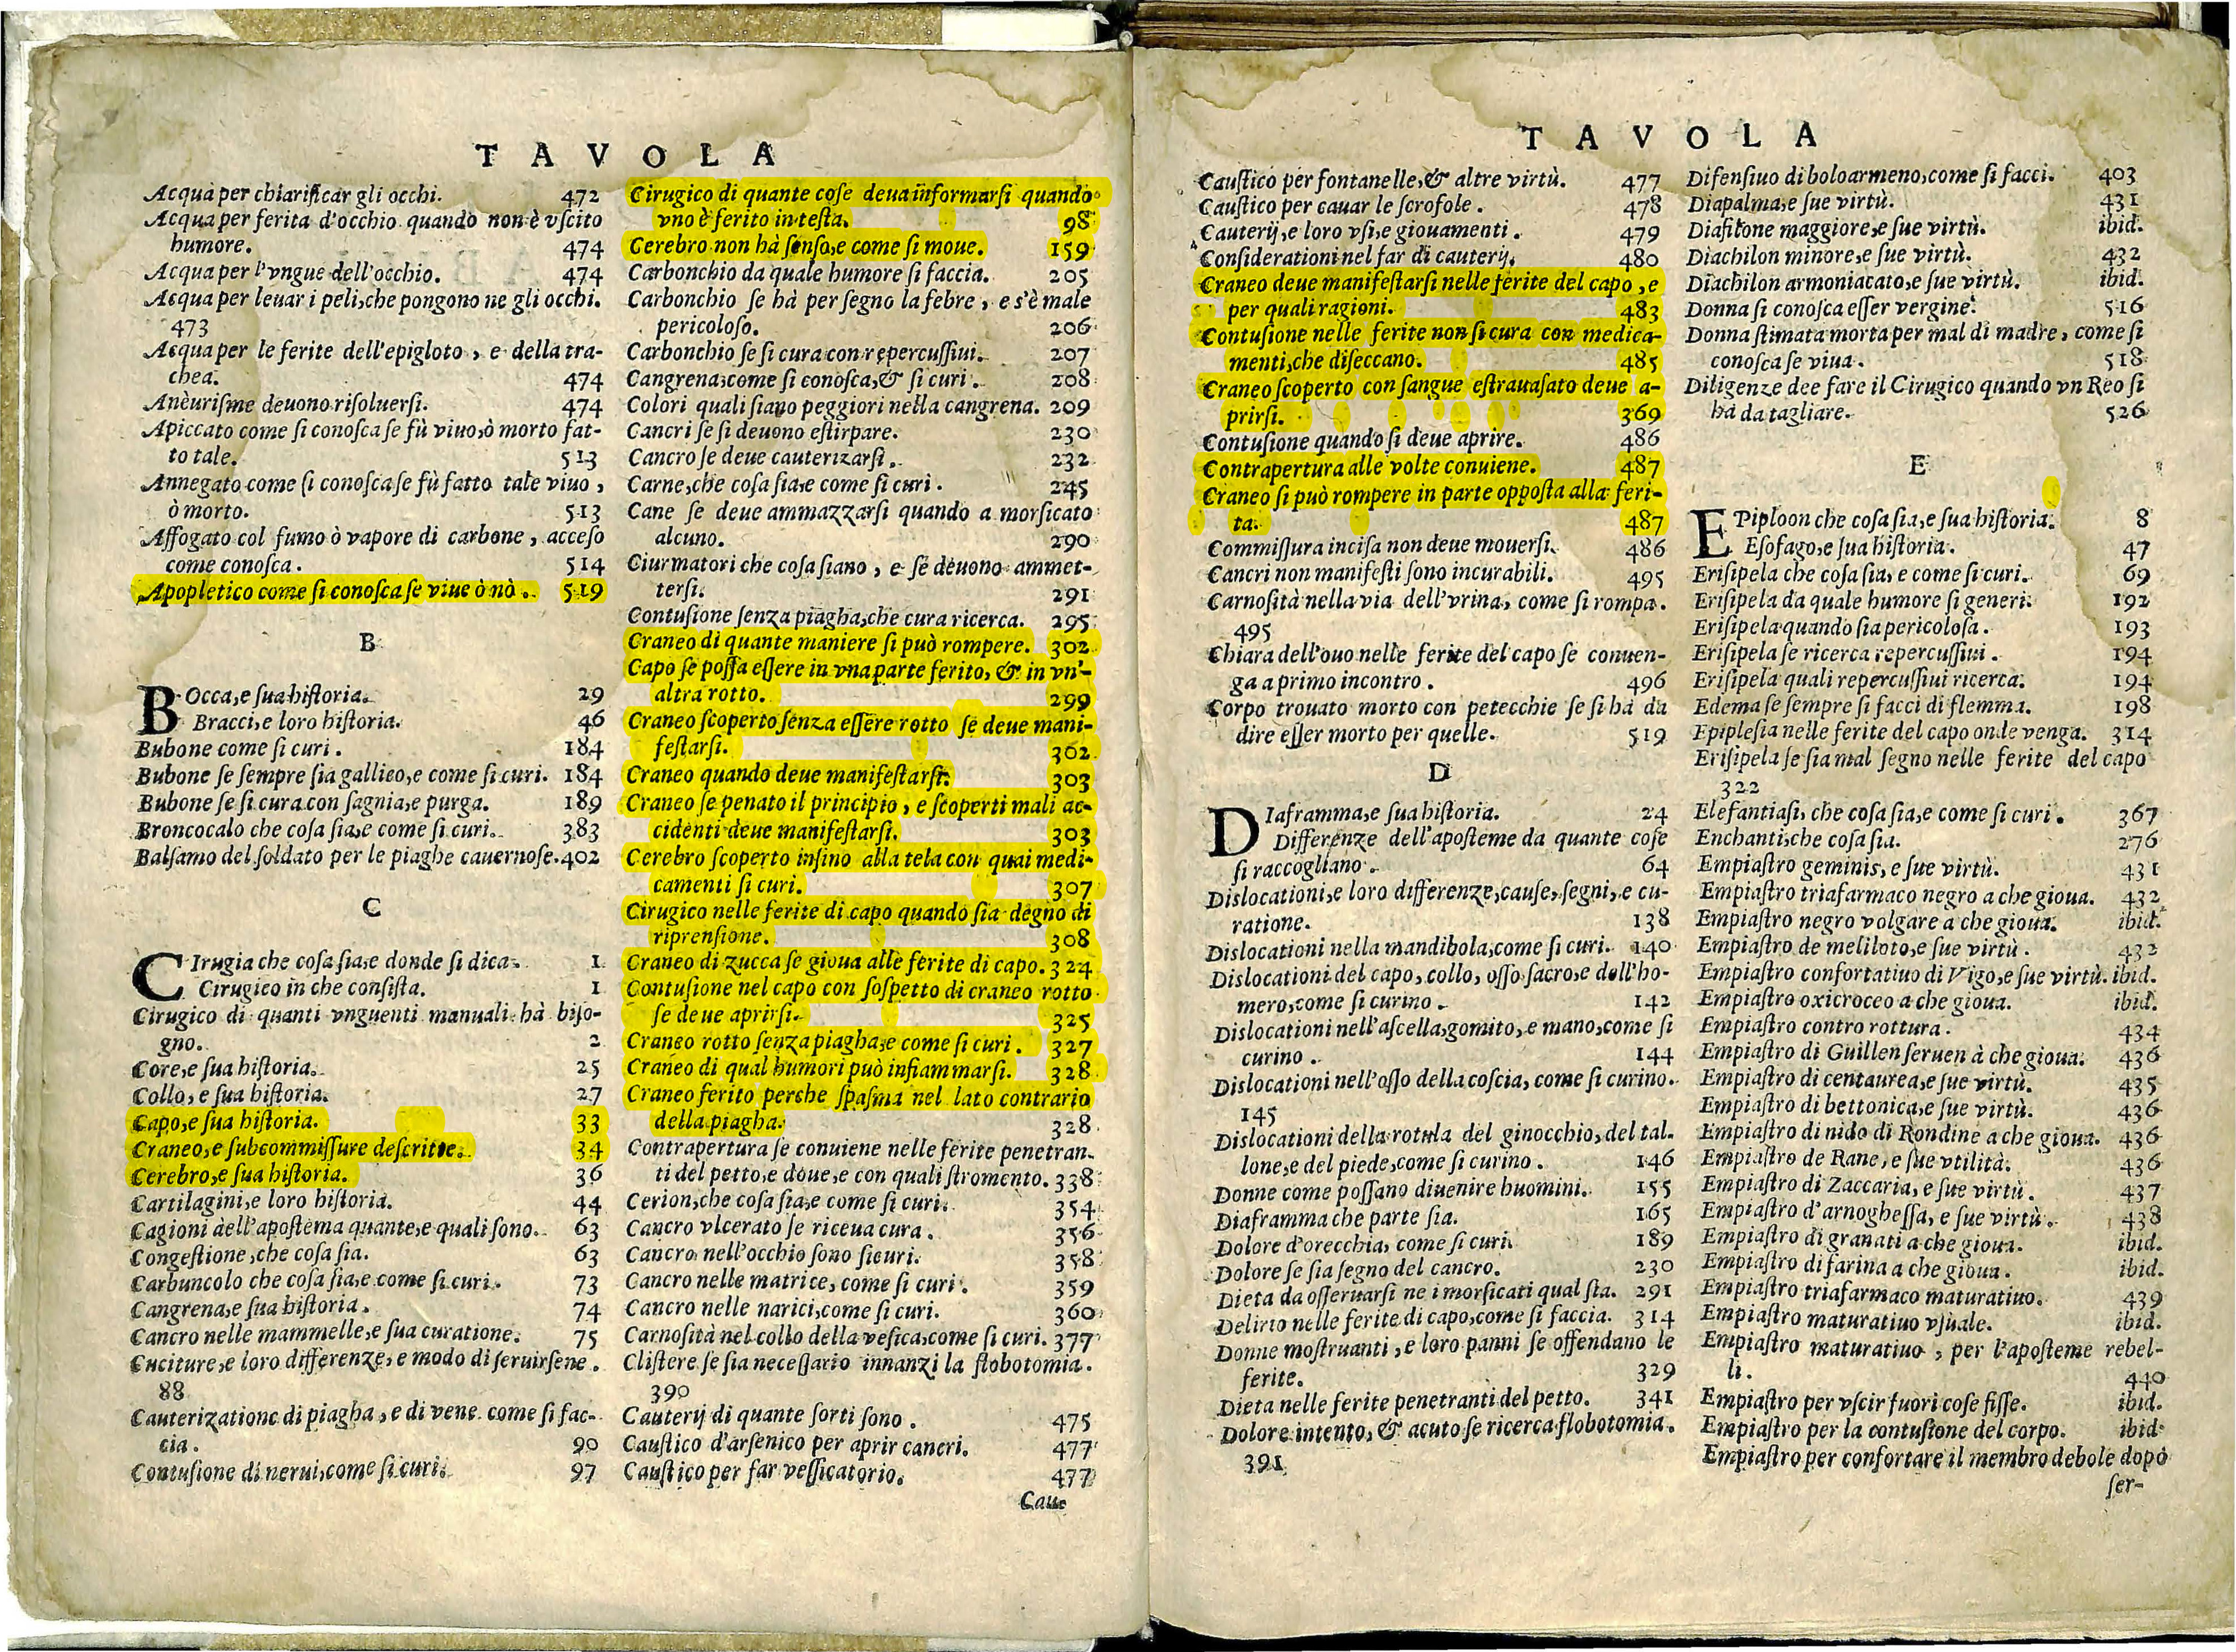 TAVOLA
Acqua per chiarificar gli occhi. 472
Acqua per ferita d'occhio quando non è vſcito
humore. 474
Acqua per l'vngue dell'occhio. 474
Acqua per leuar i peli, che pongono ne gli occhi.
473
Acqua per le ferite dell'epigloto, e della tra-
chea. 474
Aneurisme deuono riſoluerſi. 474
Apiccato come ſi conoſca ſe fù viuo, ò morto fat-
to tale. 513
Annegato come ſi conoſca ſe fù fatto tale viuo,
ò morto. 513
Affogato col fumo ò vapore di carbone, acceſo
come conoſca. 514
Apopletico come ſi conoſca ſe viue ò nò. 519
B
BOcca, e ſua hiſtoria. 29
Bracci, e loro hiſtoria. 46
Bubone come ſi curi. 184
Bubone ſe ſempre ſia gallico, e come ſi curi. 184
Bubone ſe ſi cura con ſagnia, e purga. 189
Broncocalo che coſa ſia, e come ſi curi. 383
Balſamo del ſoldato per le piaghe cauernoſe. 402
C
CIrugia che coſa ſia, e donde ſi dica. 1
Cirugico in che conſiſta. 1
Cirugico di quanti vnguenti manuali hà biſo-
gno. 2
Core, e ſua hiſtoria. 25
Collo, e ſua hiſtoria. 27
Capo, e ſua hiſtoria. 33
Craneo, e ſubcommiſſure deſcritte. 34
Cerebro, e ſua hiſtoria. 36
Cartilagini, e loro hiſtoria. 44
Cagioni dell'apoſtema quante, e quali ſono. 63
Congeſtione, che coſa ſia. 63
Carbuncolo che coſa ſia, e come ſi curi. 73
Cangrena, e ſua hiſtoria. 74
Cancro nelle mammelle, e ſua curatione. 75
Cuciture, e loro differenze, e modo di ſeruirſene.
88
Cauterizatione di piagha, e di vene come ſi fac-
cia. 90
Contuſione di nerui, come ſi curi. 97
Cirugico di quante coſe deua informarſi quando
vno è ferito in teſta. 98
Cerebro non hà ſenſo, e come ſi moue. 159
Carbonchio da quale humore ſi faccia. 205
Carbonchio ſe hà per ſegno la febre, e s'è male
pericoloſo. 206
Carbonchio ſe ſi cura con repercuſſiui. 207
Cangrena, come ſi conoſca, & ſi curi. 208
Colori quali ſiano peggiori nella cangrena. 209
Cancri ſe ſi deuono eſtirpare. 230
Cancro ſe deue cauterizarſi. 232
Carne, che coſa ſia, e come ſi curi. 245
Cane ſe deue ammazzarſi quando a morſicato
alcuno. 290
Ciurmatori che coſa ſiano, e ſe deuono ammet-
terſi. 291
Contuſione ſenza piagha, che cura ricerca. 295
Craneo di quante maniere ſi può rompere. 302
Capo ſe poſſa eſſere in vna parte ferito, & in vn'-
altra rotto. 299
Craneo ſcoperto ſenza eſſere rotto ſe deue mani-
feſtarſi. 362
Craneo quando deue manifeſtarſi. 303
Craneo ſe penato il principio, e ſcoperti mali ac-
cidenti deue manifeſtarſi. 303
Cerebro ſcoperto inſino alla tela con quai medi-
camenti ſi curi. 307
Cirugico nelle ferite di capo quando ſia degno di
riprenſione. 308
Craneo di zucca ſe gioua alle ferite di capo. 324
Contuſione nel capo con ſoſpetto di craneo rotto
ſe deue aprirſi. 325
Craneo rotto ſenza piagha, e come ſi curi. 327
Craneo di qual humori può infiammarſi. 328
Craneo ferito perche ſpaſma nel lato contrario
della piagha. 328
Contrapertura ſe conuiene nelle ferite penetran-
ti del petto, e doue, e con quali ſtromento. 338
Cerion, che coſa ſia, e come ſi curi. 354
Cancro vlcerato ſe riceua cura. 356
Cancro nell'occhio ſono ſicuri. 358
Cancro nelle matrice, come ſi curi. 359
Cancro nelle narici, come ſi curi. 360
Carnoſità nel collo della veſica, come ſi curi. 377
Cliſtere ſe ſia neceſſario innanzi la flobotomia.
390
Cauterij di quante ſorti ſono. 475
Cauſtico d'arſenico per aprir cancri. 477
Cauſtico per far veſſicatorio. 477
Cauſ
TAVOLA
Cauſtico per fontanelle, & altre virtù. 477
Cauſtico per cauar le ſcrofole. 478
Cauterij, e loro vſi, e giouamenti. 479
Conſiderationi nel far di cauterij. 480
Craneo deue manifeſtarſi nelle ferite del capo, e
per quali ragioni. 483
Contuſione nelle ferite non ſi cura con medica-
menti, che diſeccano. 485
Craneo ſcoperto con ſangue eſtrauaſato deue a-
prirſi. 369
Contuſione quando ſi deue aprire. 486
Contrapertura alle volte conuiene. 487
Craneo ſi può rompere in parte oppoſta alla feri-
ta. 487
Commiſſura inciſa non deue mouerſi. 486
Cancri non manifeſti ſono incurabili. 495
Carnoſità nella via dell'vrina, come ſi rompa.
495
Chiara dell'ouo nelle ferite del capo ſe conuen-
ga a primo incontro. 496
Corpo trouato morto con petecchie ſe ſi hà da
dire eſſer morto per quelle. 519
D
DIaframma, e ſua hiſtoria. 24
Differenze dell'apoſteme da quante coſe
ſi raccogliano. 64
Dislocationi, e loro differenze, cauſe, ſegni, e cu-
ratione. 138
Dislocationi nella mandibola, come ſi curi. 140
Dislocationi del capo, collo, oſſo ſacro, e dell'ho-
mero, come ſi curino. 142
Dislocationi nell'aſcella, gomito, e mano, come ſi
curino. 144
Dislocationi nell'oſſo della coſcia, come ſi curino.
145
Dislocationi della rotula del ginocchio, del tal-
lone, e del piede, come ſi curino. 146
Donne come poſſano diuenire huomini. 155
Diaframma che parte ſia. 165
Dolore d'orecchia, come ſi curi. 189
Dolore ſe ſia ſegno del cancro. 230
Dieta da oſſeruarſi ne i morſicati qual ſia. 291
Delirio nelle ferite di capo, come ſi faccia. 314
Donne moſtruanti, e loro panni ſe offendano le
ferite. 329
Dieta nelle ferite penetranti del petto. 341
Dolore intento, & acuto ſe ricerca flobotomia.
391
Difenſiuo di boloarmeno, come ſi facci. 403
Diapalma, e ſue virtù. 431
Diafitone maggiore, e ſue virtù. ibid.
Diachilon minore, e ſue virtù. 432
Diachilon armoniacato, e ſue virtù. ibid.
Donna ſi conoſca eſſer vergine. 516
Donna ſtimata morta per mal di madre, come ſi
conoſca ſe viua. 518
Diligenze dee fare il Cirugico quando vn Reo ſi
hà da tagliare. 526
E
EPiploon che coſa ſia, e ſua hiſtoria. 8
Eſofago, e ſua hiſtoria. 47
Eriſipela che coſa ſia, e come ſi curi. 69
Eriſipela da quale humore ſi generi. 192
Eriſipela quando ſia pericoloſa. 193
Eriſipela ſe ricerca repercuſſiui. 194
Eriſipela quali repercuſſiui ricerca. 194
Edema ſe ſempre ſi facci di flemma. 198
Epipleſia nelle ferite del capo onde venga. 314
Eriſipela ſe ſia mal ſegno nelle ferite del capo
322
Elefantiaſi, che coſa ſia, e come ſi curi. 367
Enchanti, che coſa ſia. 276
Empiaſtro geminis, e ſue virtù. 431
Empiaſtro triafarmaco negro a che gioua. 432
Empiaſtro negro volgare a che gioua. ibid.
Empiaſtro de meliloto, e ſue virtù. 432
Empiaſtro confortatiuo di Vigo, e ſue virtù. ibid.
Empiaſtro oxicroceo a che gioua. ibid.
Empiaſtro contro rottura. 434
Empiaſtro di Guillen ſeruen à che gioua. 436
Empiaſtro di centaurea, e ſue virtù. 435
Empiaſtro di bettonica, e ſue virtù. 436
Empiaſtro di nido di Rondine a che gioua. 436
Empiaſtro de Rane, e ſue vtilità. 436
Empiaſtro di Zaccaria, e ſue virtù. 437
Empiaſtro d'arnogheſſa, e ſue virtù. 438
Empiaſtro di granati a che gioua. ibid.
Empiaſtro di farina a che gioua. ibid.
Empiaſtro triafarmaco maturatiuo. 439
Empiaſtro maturatiuo vſuale. ibid.
Empiaſtro maturatiuo, per l'apoſteme rebel-
li. 440
Empiaſtro per vſcir fuori coſe fiſſe. ibid.
Empiaſtro per la contuſione del corpo. ibid.
Empiaſtro per confortare il membro debole dopò
ſer-